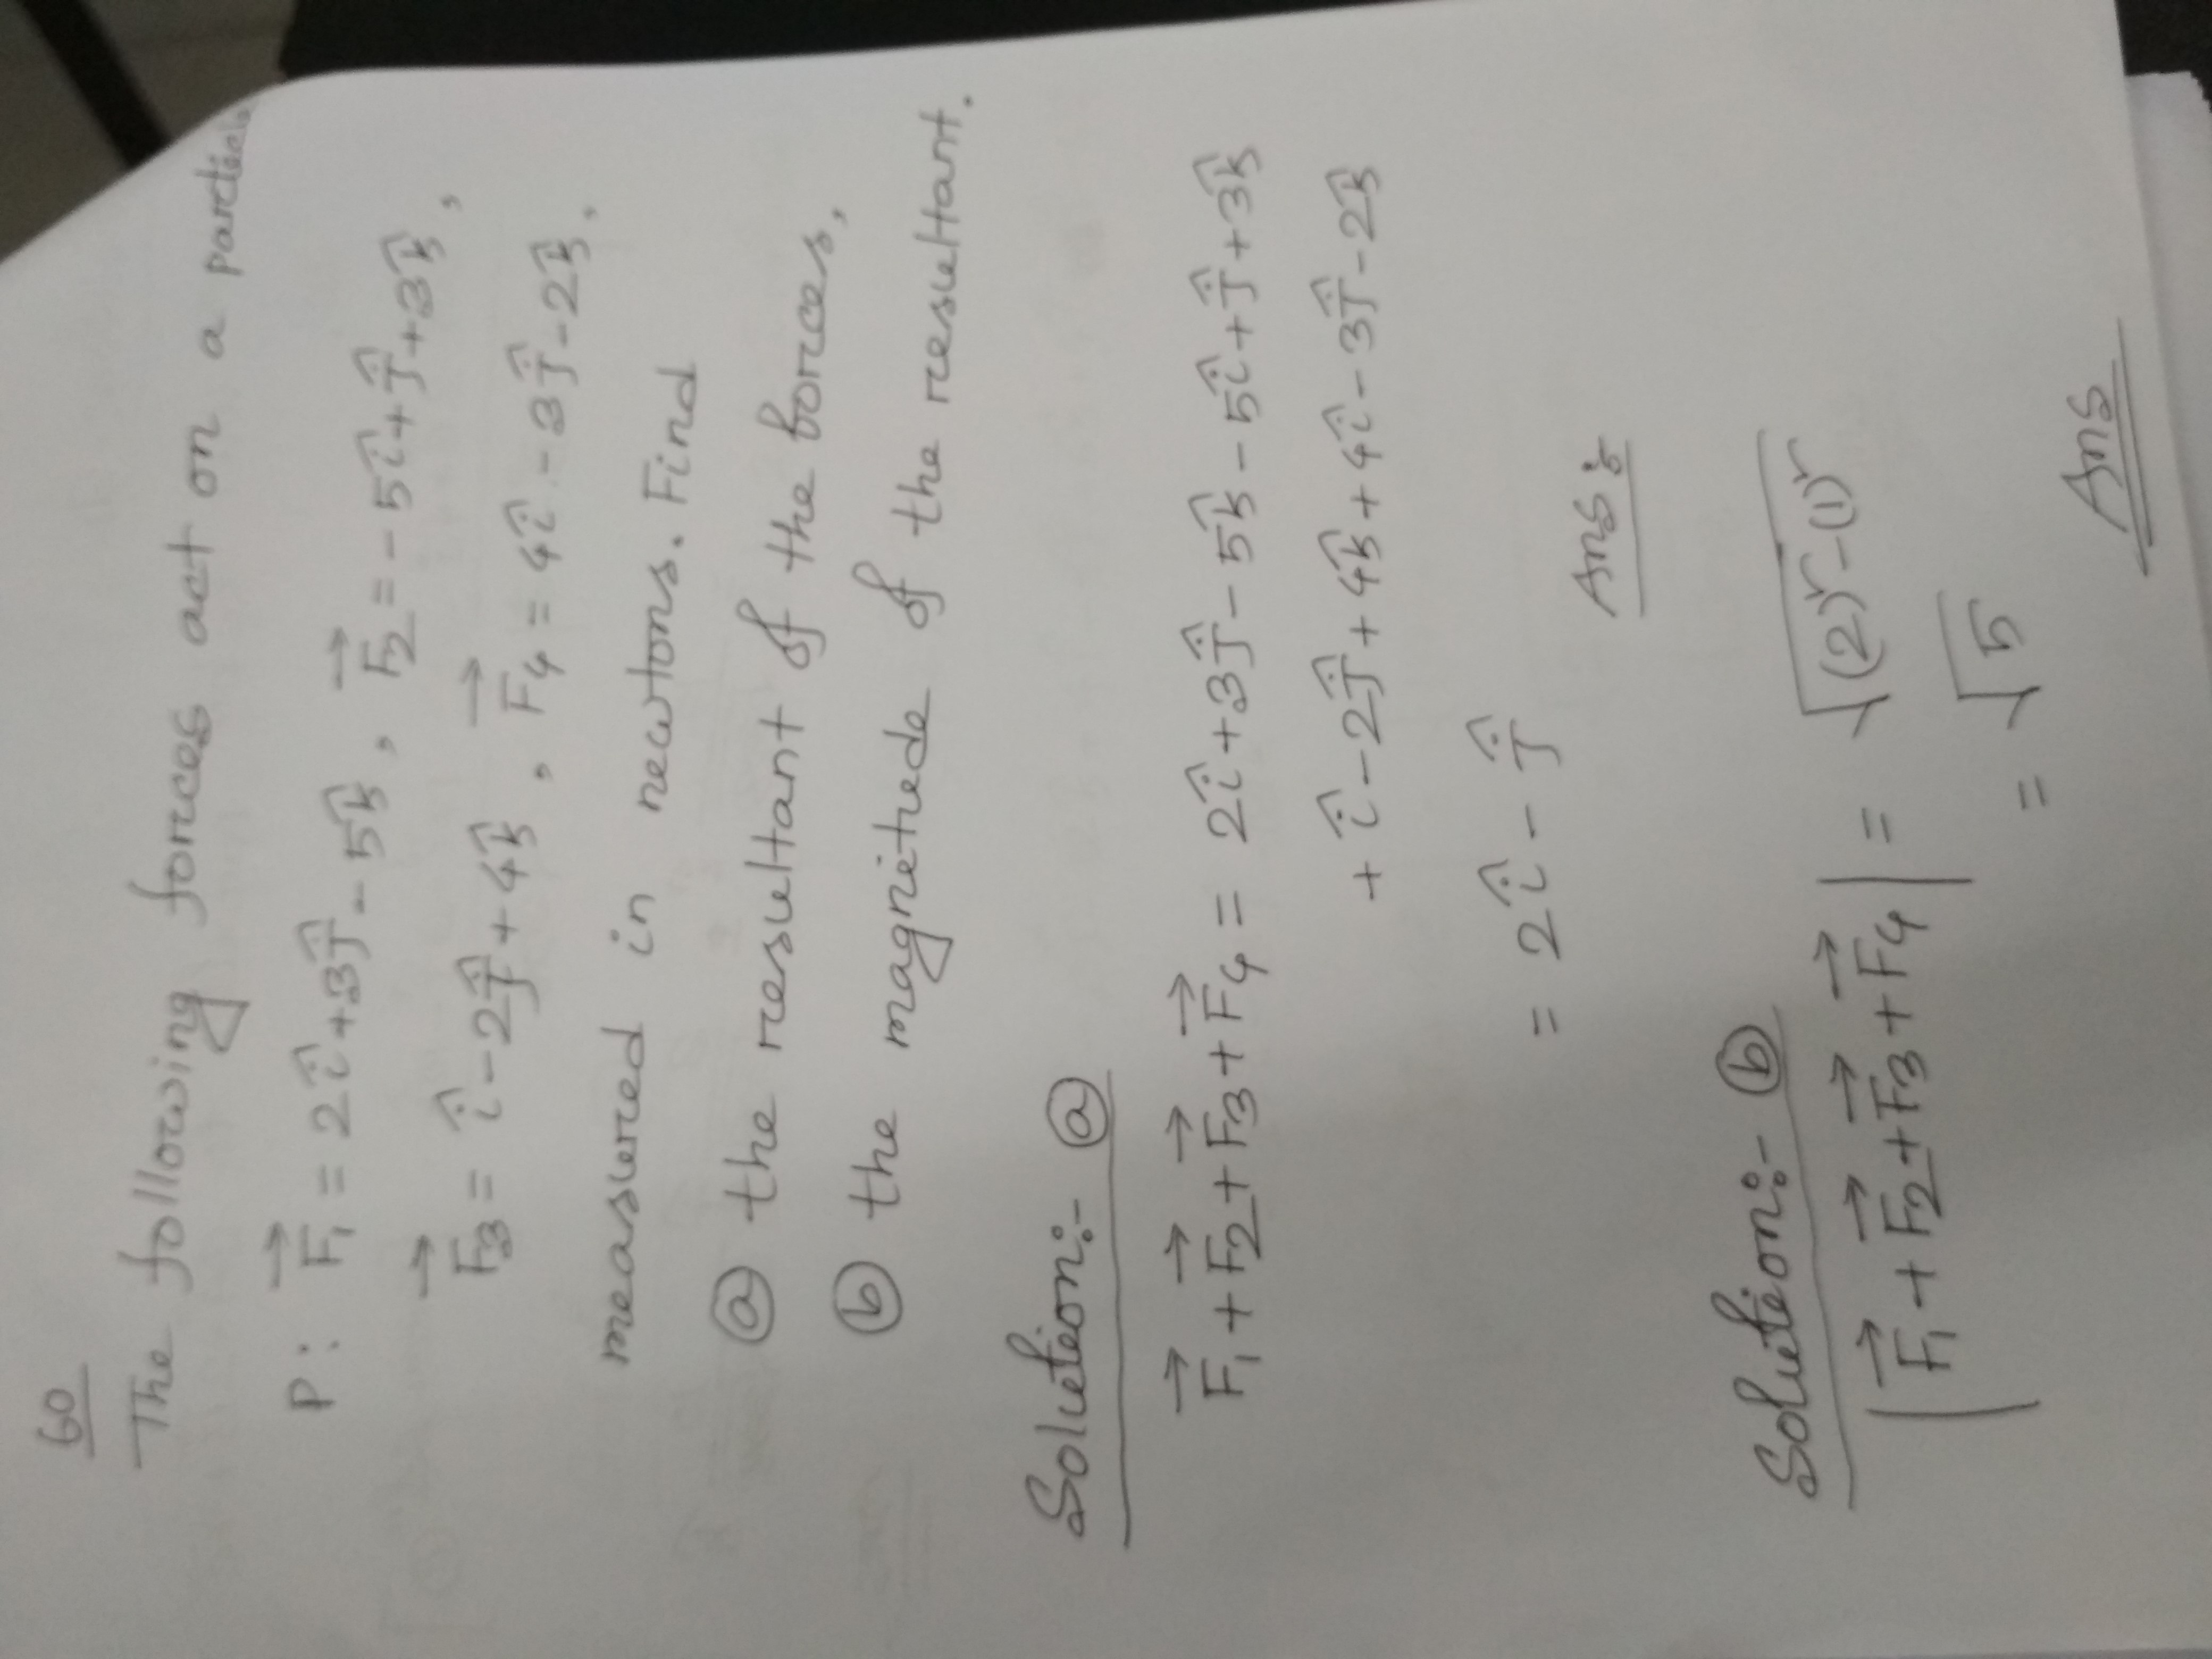 60
The following forces act on a particle
P: F₁⃗ = 2î+3ĵ-5k̂, F₂⃗ = -5î+ĵ+3k̂,
F₃⃗ = î-2ĵ+4k̂, F₄⃗ = 4î-3ĵ-2k̂,
measured in newtons. Find
ⓐ the resultant of the forces,
ⓑ the magnitude of the resultant.
Solution:- ⓐ
F₁⃗+F₂⃗+F₃⃗+F₄⃗ = 2î+3ĵ-5k̂-5î+ĵ+3k̂
+î-2ĵ+4k̂+4î-3ĵ-2k̂
= 2î-ĵ
Ans:
Solution:- ⓑ
|F₁⃗+F₂⃗+F₃⃗+F₄⃗| = √(2)²-(1)²
= √5
Ans